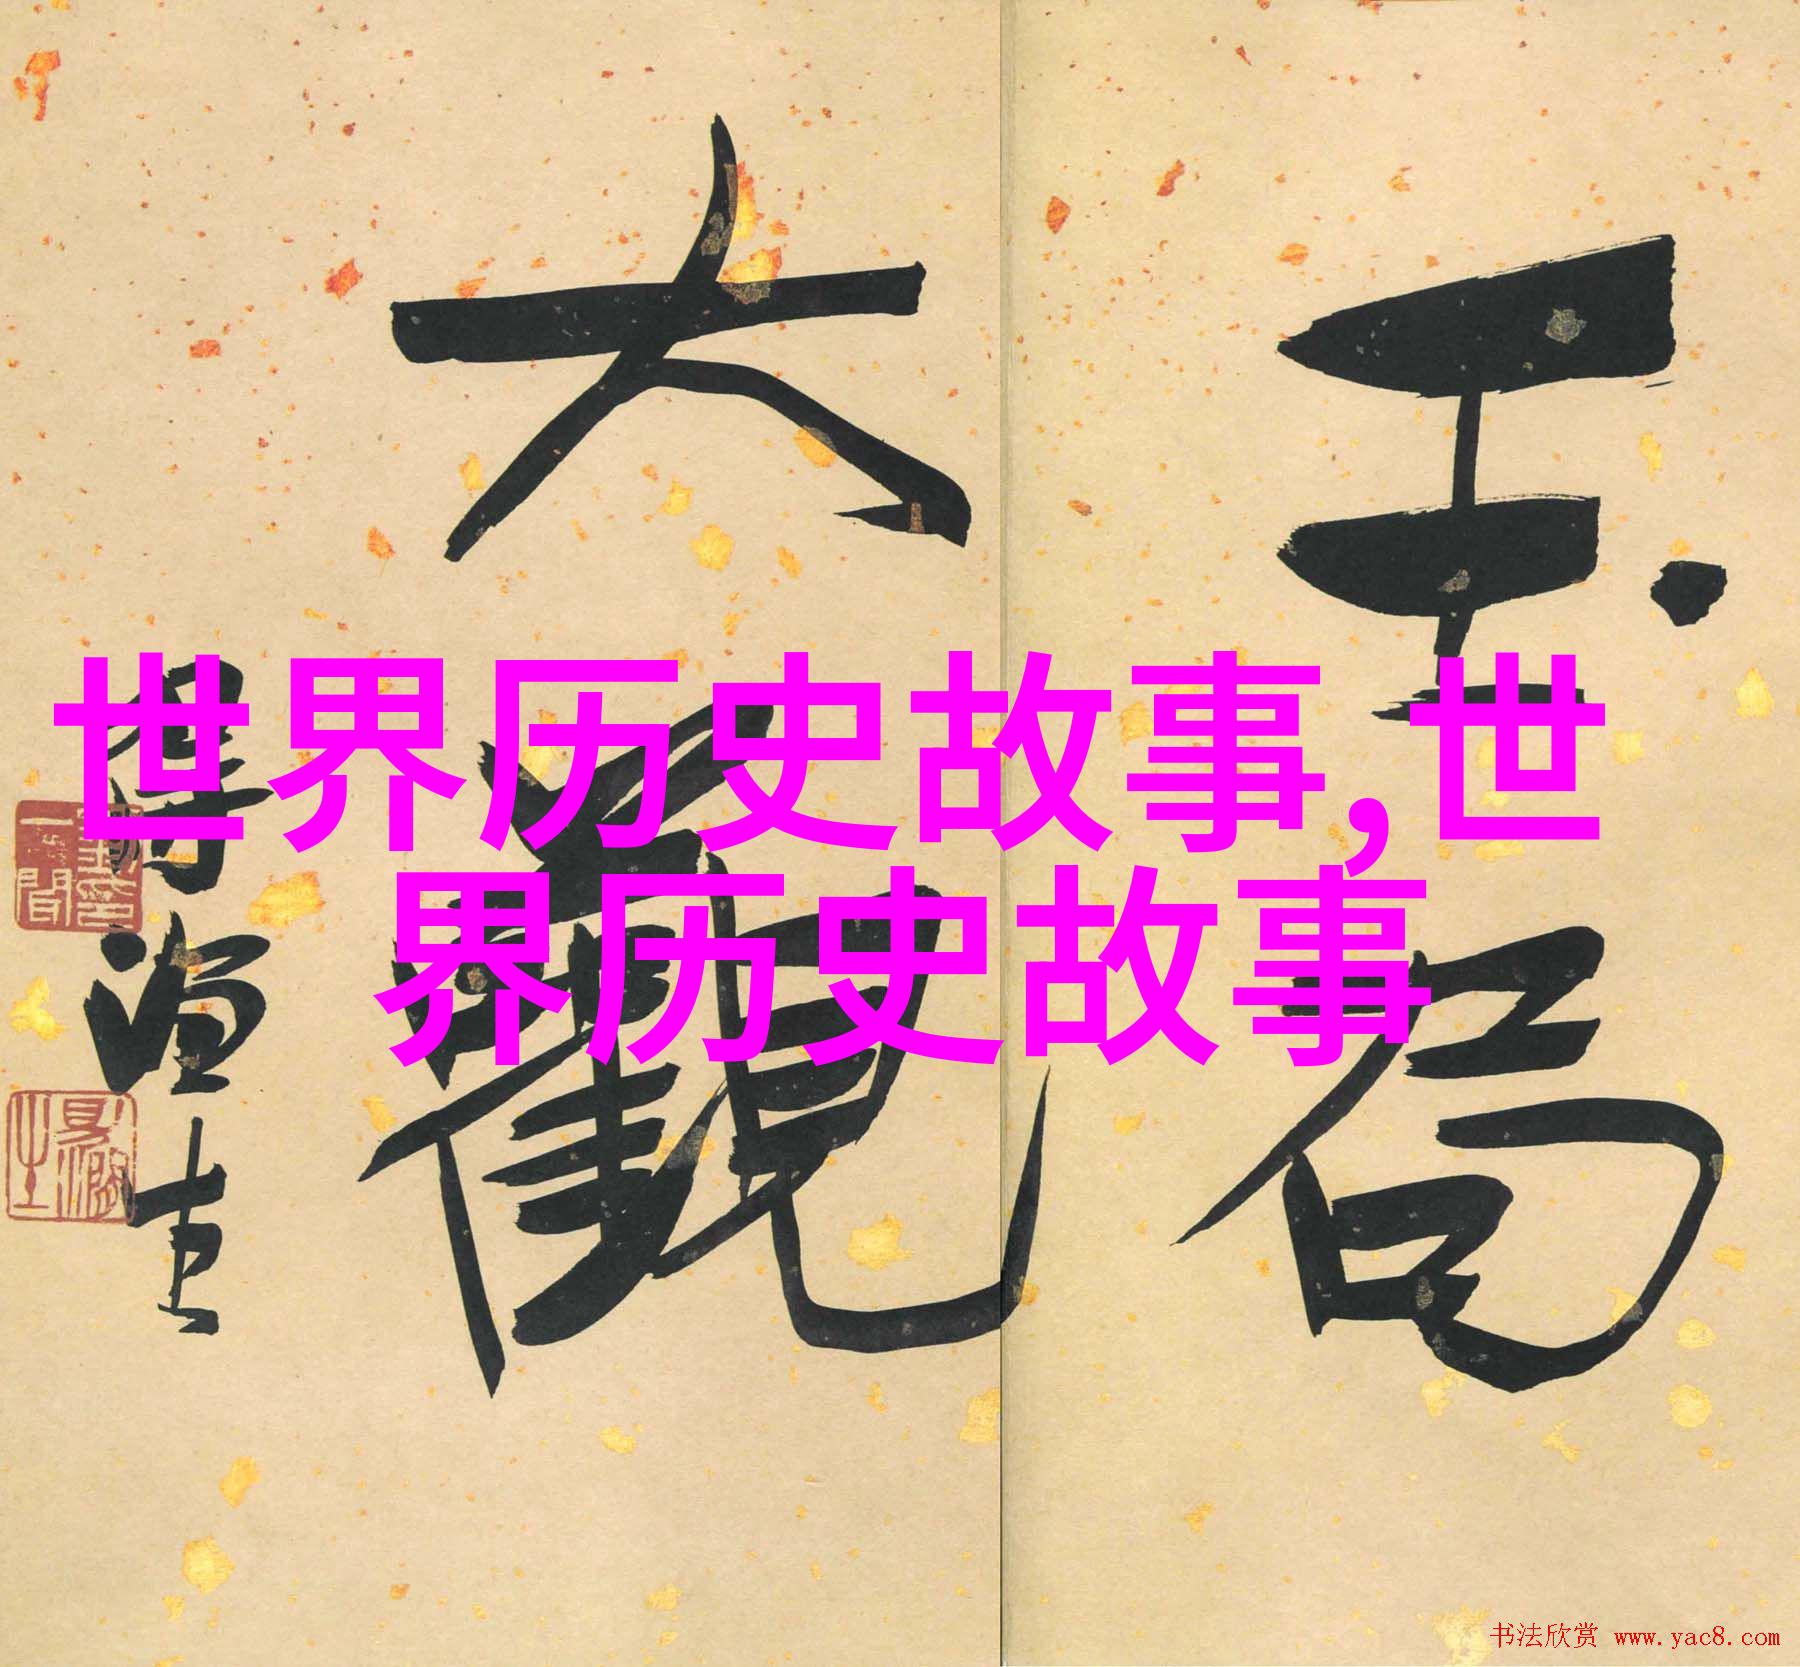 玉局
大觀
世界历史故事,世
界历史故事
书法欣赏 www.yac8.com